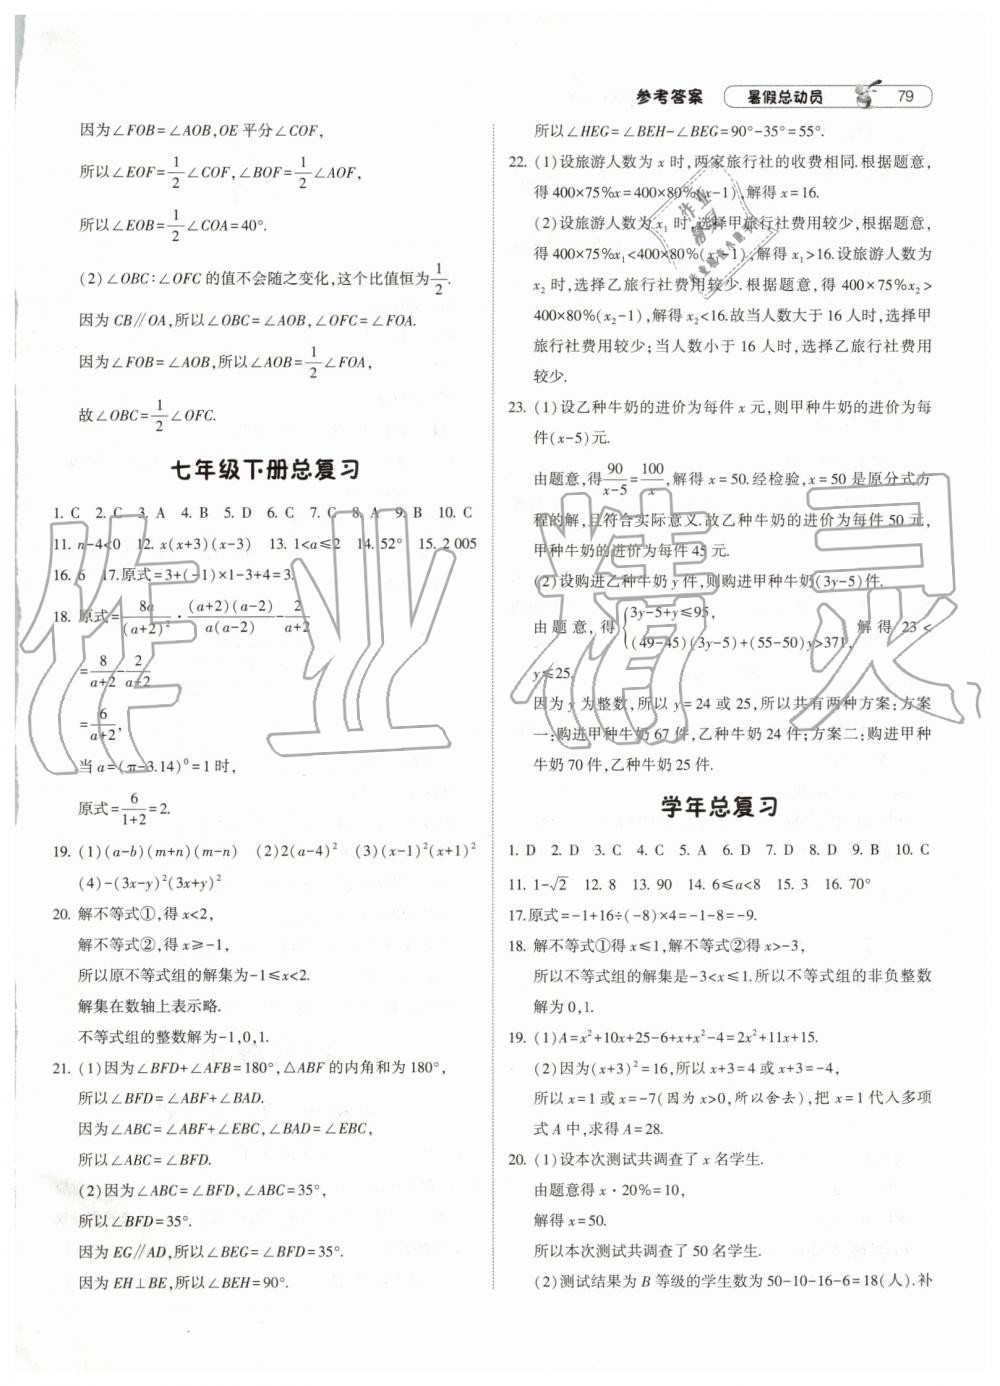 参考答案 暑假总动员 79
因为∠FOB=∠AOB,OE 平分∠COF,
所以∠EOF=1/2∠COF,∠BOF=1/2∠AOF,
所以∠EOB=1/2∠COA=40°.
(2)∠OBC∶∠OFC 的值不会随之变化,这个比值恒为1/2.
因为 CB∥OA,所以∠OBC=∠AOB,∠OFC=∠FOA.
因为∠FOB=∠AOB,所以∠AOB=1/2∠FOA,
故∠OBC=1/2∠OFC.
七年级下册总复习
1. C 2. C 3. A 4. B 5. D 6. C 7. C 8. A 9. B 10. C
11. n-4<0 12. x(x+3)(x-3) 13. 1<a≤2 14. 52° 15. 2 005
16. 6 17.原式=3+(-1)×1-3+4=3.
18. 原式=8a/(a+2)²·(a+2)(a-2)/a(a-2)-2/a+2
=8/a+2-2/a+2
=6/a+2,
当 a=(π-3.14)⁰=1 时,
原式=6/1+2=2.
19. (1)(a-b)(m+n)(m-n) (2)2(a-4)² (3)(x-1)²(x+1)²
(4)-(3x-y)²(3x+y)²
20. 解不等式①,得 x<2,
解不等式②,得 x≥-1,
所以原不等式组的解集为-1≤x<2.
解集在数轴上表示略.
不等式组的整数解为-1,0,1.
21. (1)因为∠BFD+∠AFB=180°,△ABF 的内角和为 180°,
所以∠BFD=∠ABF+∠BAD.
因为∠ABC=∠ABF+∠EBC,∠BAD=∠EBC,
所以∠ABC=∠BFD.
(2)因为∠ABC=∠BFD,∠ABC=35°,
所以∠BFD=35°.
因为 EG∥AD,所以∠BEG=∠BFD=35°.
因为 EH⊥BE,所以∠BEH=90°.
所以∠HEG=∠BEH-∠BEG=90°-35°=55°.
22. (1)设旅游人数为 x 时,两家旅行社的收费相同.根据题意,
得 400×75%x=400×80%(x-1),解得 x=16.
(2)设旅游人数为 x₁ 时,选择甲旅行社费用较少,根据题意,
得 400×75%x₁<400×80%(x₁-1),解得 x₁>16.设旅游人数为
x₂ 时,选择乙旅行社费用较少.根据题意,得 400×75%x₂>
400×80%(x₂-1),解得 x₂<16.故当人数大于 16 人时,选择甲
旅行社费用较少;当人数小于 16 人时,选择乙旅行社费用
较少.
23. (1)设乙种牛奶的进价为每件 x 元,则甲种牛奶的进价为每
件(x-5)元.
由题意,得90/x-5=100/x,解得 x=50.经检验,x=50 是原分式方
程的解,且符合实际意义.故乙种牛奶的进价为每件 50 元,
甲种牛奶的进价为每件 45 元.
(2)设购进乙种牛奶 y 件,则购进甲种牛奶(3y-5)件.
由题意,得{3y-5+y≤95,
(49-45)(3y-5)+(55-50)y>371, 解得 23<
y≤25.
因为 y 为整数,所以 y=24 或 25,所以共有两种方案:方案
一:购进甲种牛奶 67 件,乙种牛奶 24 件;方案二:购进甲种
牛奶 70 件,乙种牛奶 25 件.
学年总复习
1. D 2. D 3. C 4. C 5. A 6. D 7. D 8. D 9. B 10. C
11. 1-√2 12. 8 13. 90 14. 6≤a<8 15. 3 16. 70°
17.原式=-1+16÷(-8)×4=-1-8=-9.
18. 解不等式①得 x≤1,解不等式②得 x>-3,
所以不等式组的解集是-3<x≤1.所以不等式组的非负整数
解为 0,1.
19. (1)A=x²+10x+25-6+x+x²-4=2x²+11x+15.
(2)因为(x+3)²=16,所以 x+3=4 或 x+3=-4,
所以 x=1 或 x=-7(因为 x>0,所以舍去),把 x=1 代入多项
式 A 中,求得 A=28.
20. (1)设本次测试共调查了 x 名学生.
由题意得 x·20%=10,
解得 x=50.
所以本次测试共调查了 50 名学生.
(2)测试结果为 B 等级的学生数为 50-10-16-6=18(人).补
作业精灵